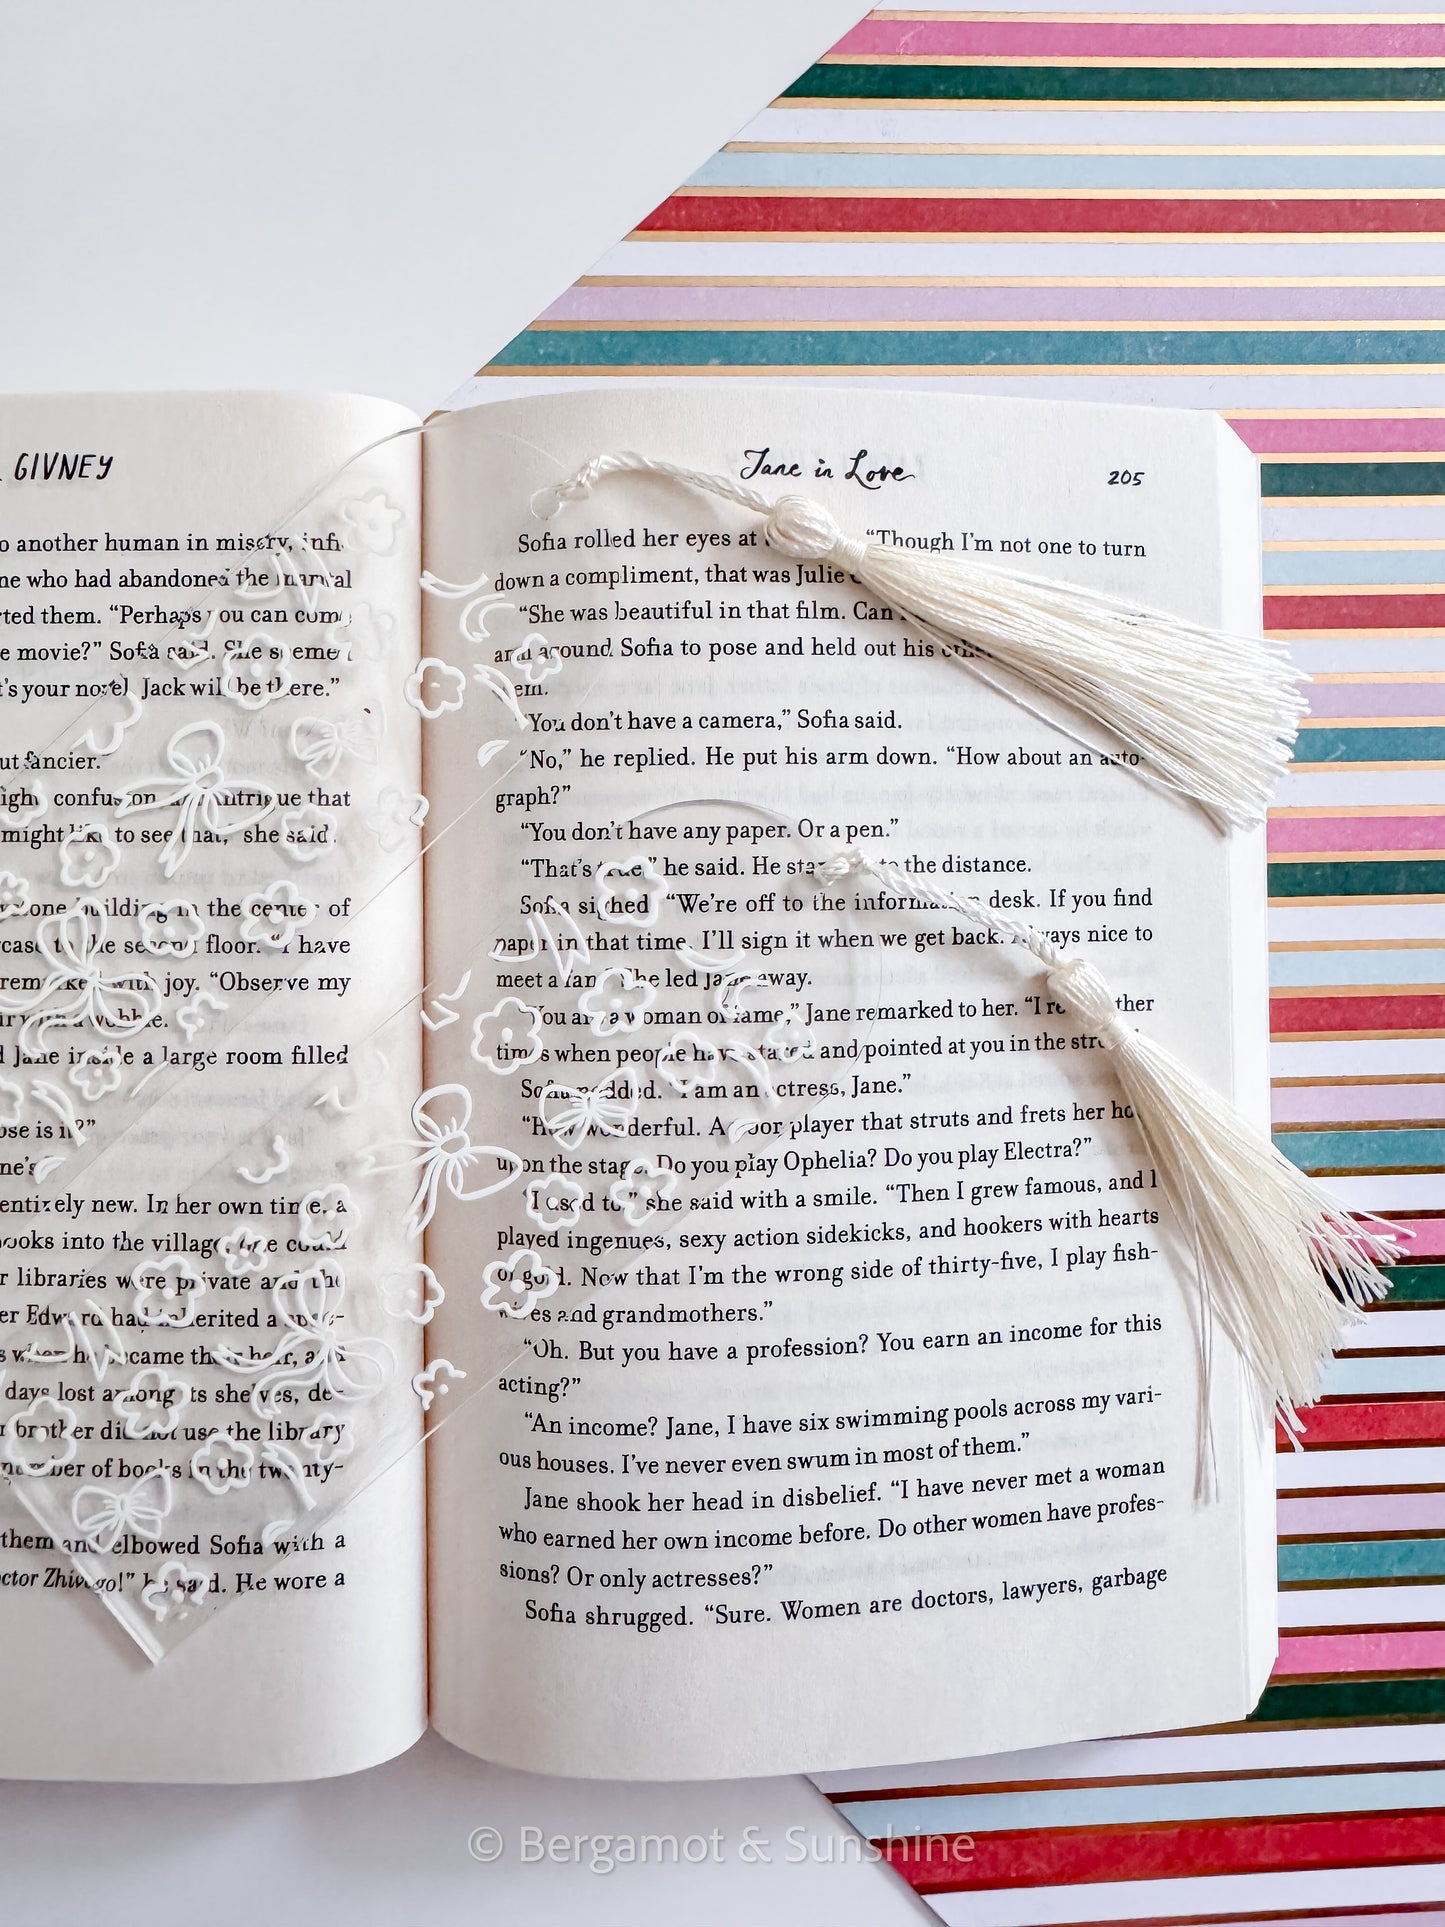 GIVNEY
another human in misery,
ne who had abandoned the marital
rted them. “Perhaps you can
e movie?” Sofia said. She
t’s your novel. Jack will be there.”
ut fancier.”
confusion and intrigue that
might like to see that,” she said.
building in the center of
to the second floor. “I have
remarked with joy. “Observe my
with a wobble.
Jane inside a large room filled
ose is it?”
ne’s
entirely new. In her own time, a
ooks into the village. One could
r libraries were private and the
er Edward had inherited a
s when he became their heir, and
days lost among its shelves, de-
brother did not use the library
number of books in the twenty-
them and elbowed Sofia with a
ctor Zhivago!” he said. He wore a
Jane in Love
205
Sofia rolled her eyes at “Though I’m not one to turn
down a compliment, that was Julie
“She was beautiful in that film. Can
arm around Sofia to pose and held out his other
them.
“You don’t have a camera,” Sofia said.
“No,” he replied. He put his arm down. “How about an auto-
graph?”
“You don’t have any paper. Or a pen.”
“That’s true,” he said. He the distance.
Sofia sighed. “We’re off to the information desk. If you find
paper in that time, I’ll sign it when we get back. Always nice to
meet a fan.” She led Jane away.
“You are a woman of fame,” Jane remarked to her. “I
times when people have stared and pointed at you in the
Sofia nodded. “I am an actress, Jane.”
“How wonderful. A poor player that struts and frets her
upon the stage. Do you play Ophelia? Do you play Electra?”
“I used to,” she said with a smile. “Then I grew famous, and I
played ingenues, sexy action sidekicks, and hookers with hearts
of gold. Now that I’m the wrong side of thirty-five, I play fish-
wives and grandmothers.”
“Oh. But you have a profession? You earn an income for this
acting?”
“An income? Jane, I have six swimming pools across my vari-
ous houses. I’ve never even swum in most of them.”
Jane shook her head in disbelief. “I have never met a woman
who earned her own income before. Do other women have profes-
sions? Or only actresses?”
Sofia shrugged. “Sure. Women are doctors, lawyers, garbage
© Bergamot & Sunshine